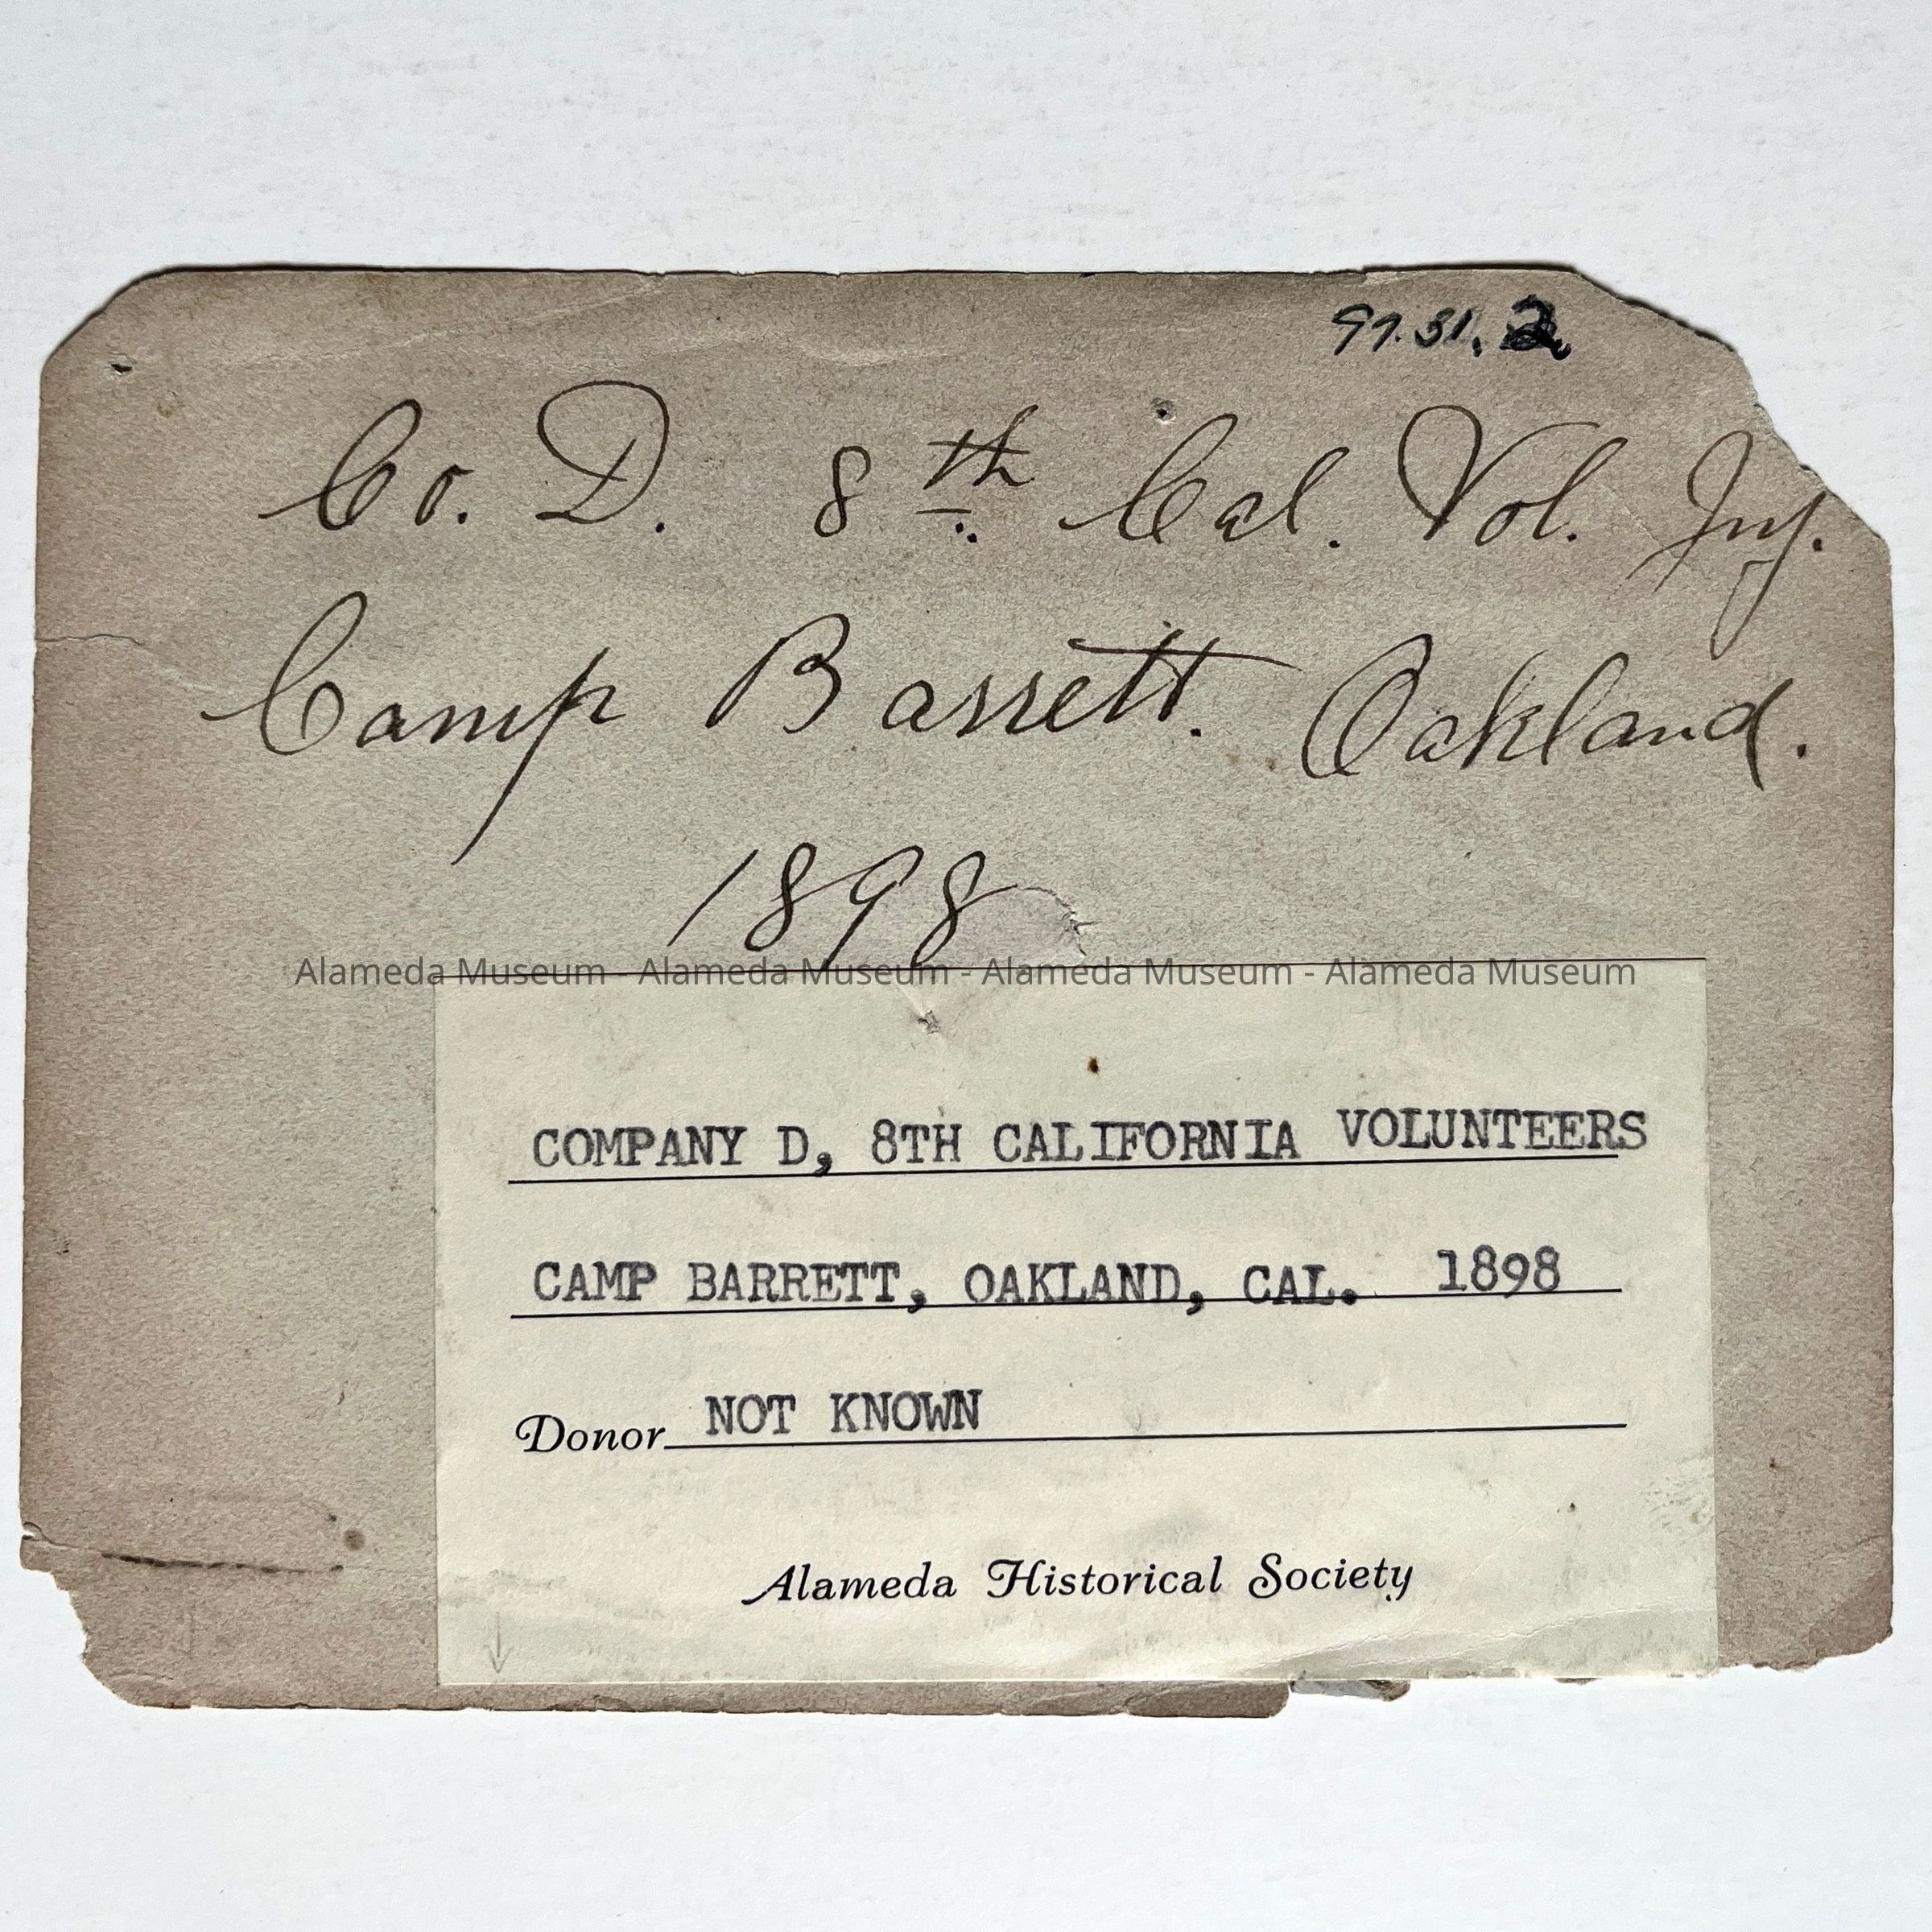 97.31.2
Co. D. 8th Cal. Vol. Inf.
Camp Barrett. Oakland.
1898
Alameda Museum - Alameda Museum - Alameda Museum - Alameda Museum
COMPANY D, 8TH CALIFORNIA VOLUNTEERS
CAMP BARRETT, OAKLAND, CAL. 1898
Donor NOT KNOWN
Alameda Historical Society